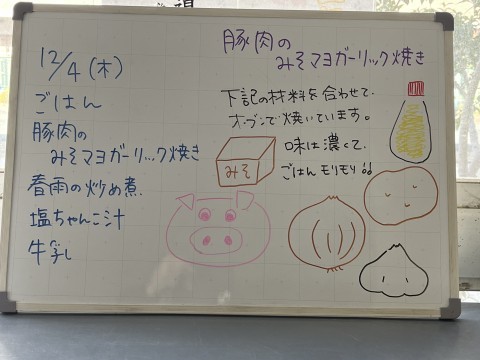 12/4(木)
ごはん
豚肉の
みそマヨガーリック焼き
春雨の炒め煮
塩ちゃんこ汁
牛乳
豚肉の
みそマヨガーリック焼き
下記の材料を合わせて、
オーブンで焼いています。
味は濃くて、
ごはんモリモリ!!
みそ